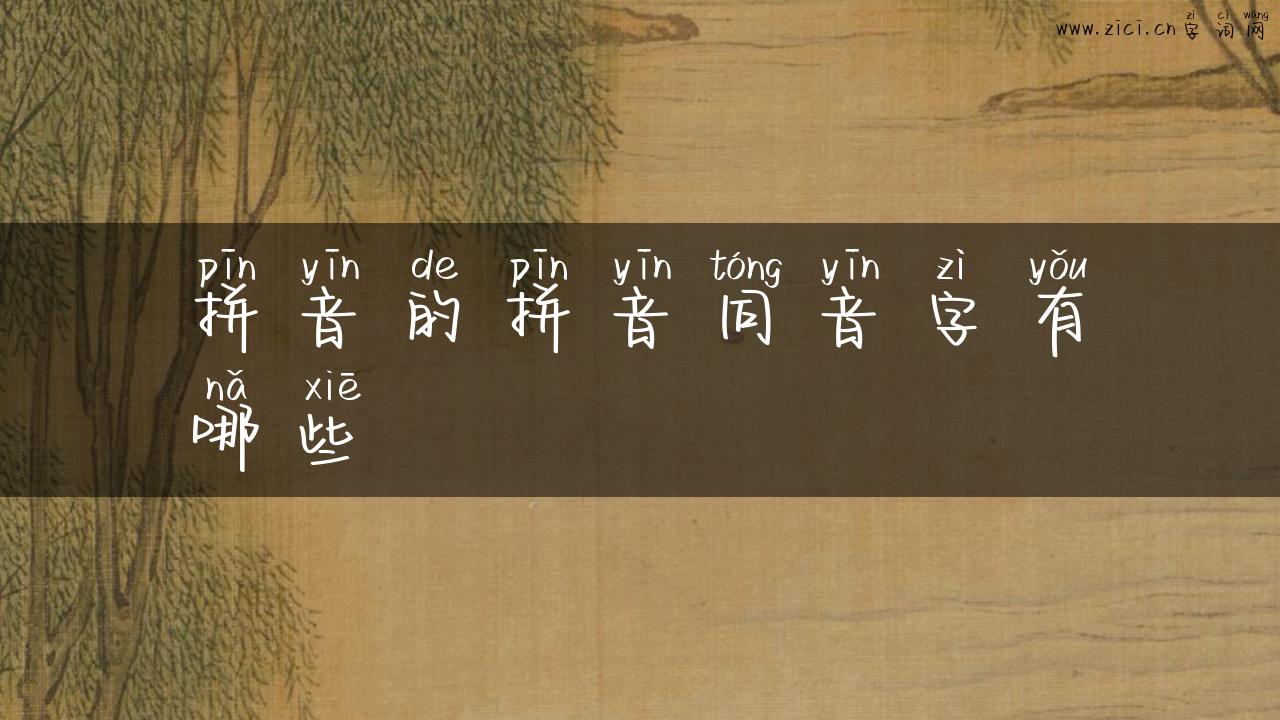 zì cí wǎng
www.zici.cn 字词网
pīn yīn de pīn yīn tóng yīn zì yǒu
拼音的拼音同音字有
nǎ xiē
哪些